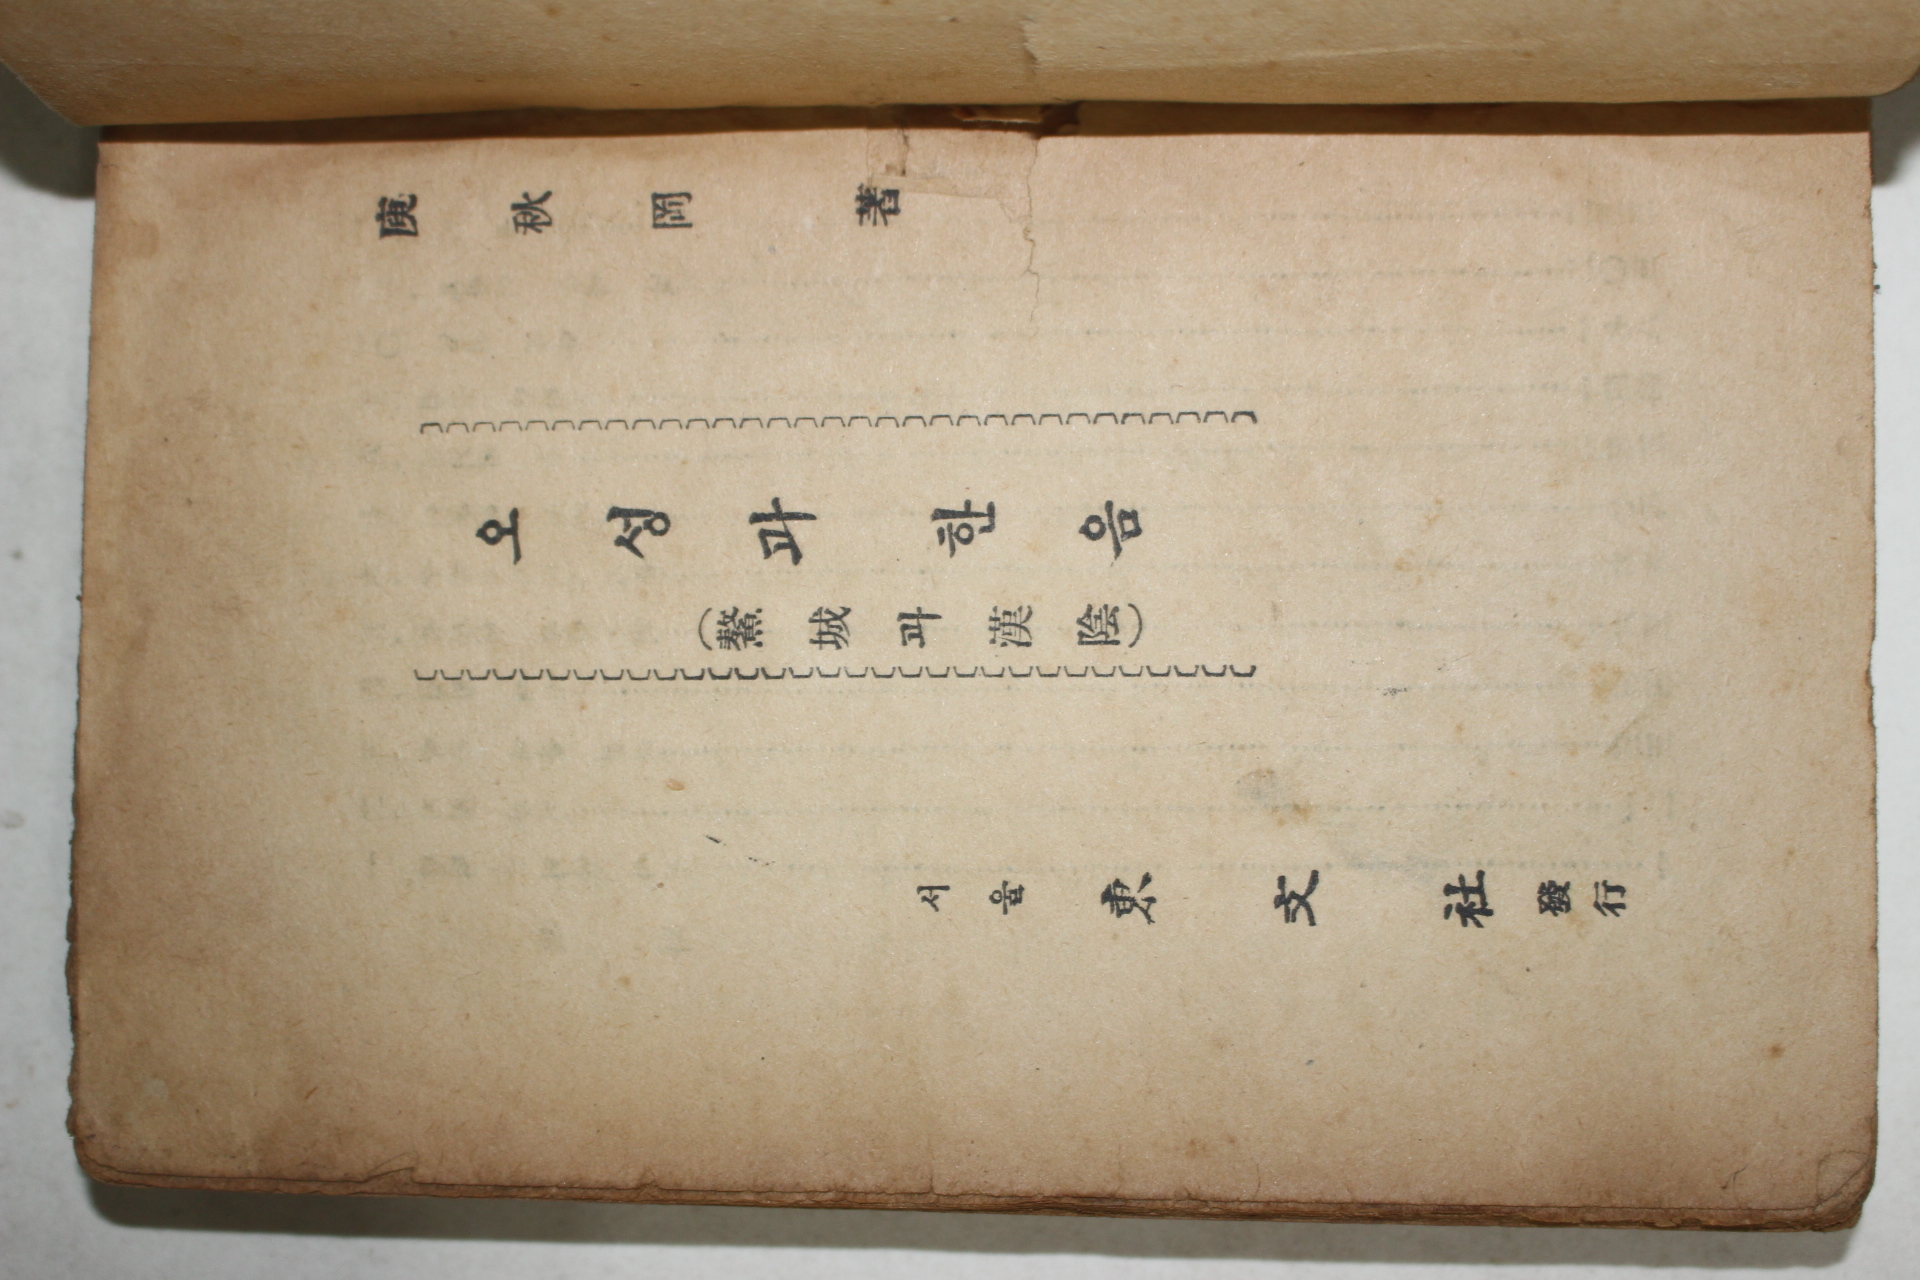 庾秋岡 著
오성과 한음
(鰲城과 漢陰)
서울 東文社 發行